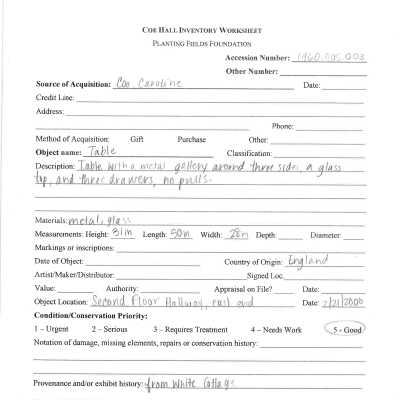 COE HALL INVENTORY WORKSHEET
PLANTING FIELDS FOUNDATION
Accession Number: 1960.005.003
Other Number:
Source of Acquisition: Coe Caroline Date:
Credit Line:
Address:
Phone:
Method of Acquisition: Gift Purchase Other:
Object name: Table Classification:
Description: Table with a metal gallery around three sides, a glass
top, and three drawers, no pulls.
Materials: metal, glass
Measurements: Height: 31in Length: 50in Width: 28in Depth: Diameter:
Markings or inscriptions:
Date of Object: Country of Origin: England
Artist/Maker/Distributor: Signed Loc.
Value: Authority: Appraisal on File? Date:
Object Location: Second Floor Hallway, east end Date: 2/21/2000
Condition/Conservation Priority:
1 – Urgent 2 – Serious 3 – Requires Treatment 4 – Needs Work 5 - Good
Notation of damage, missing elements, repairs or conservation history:
Provenance and/or exhibit history: from White Cottage